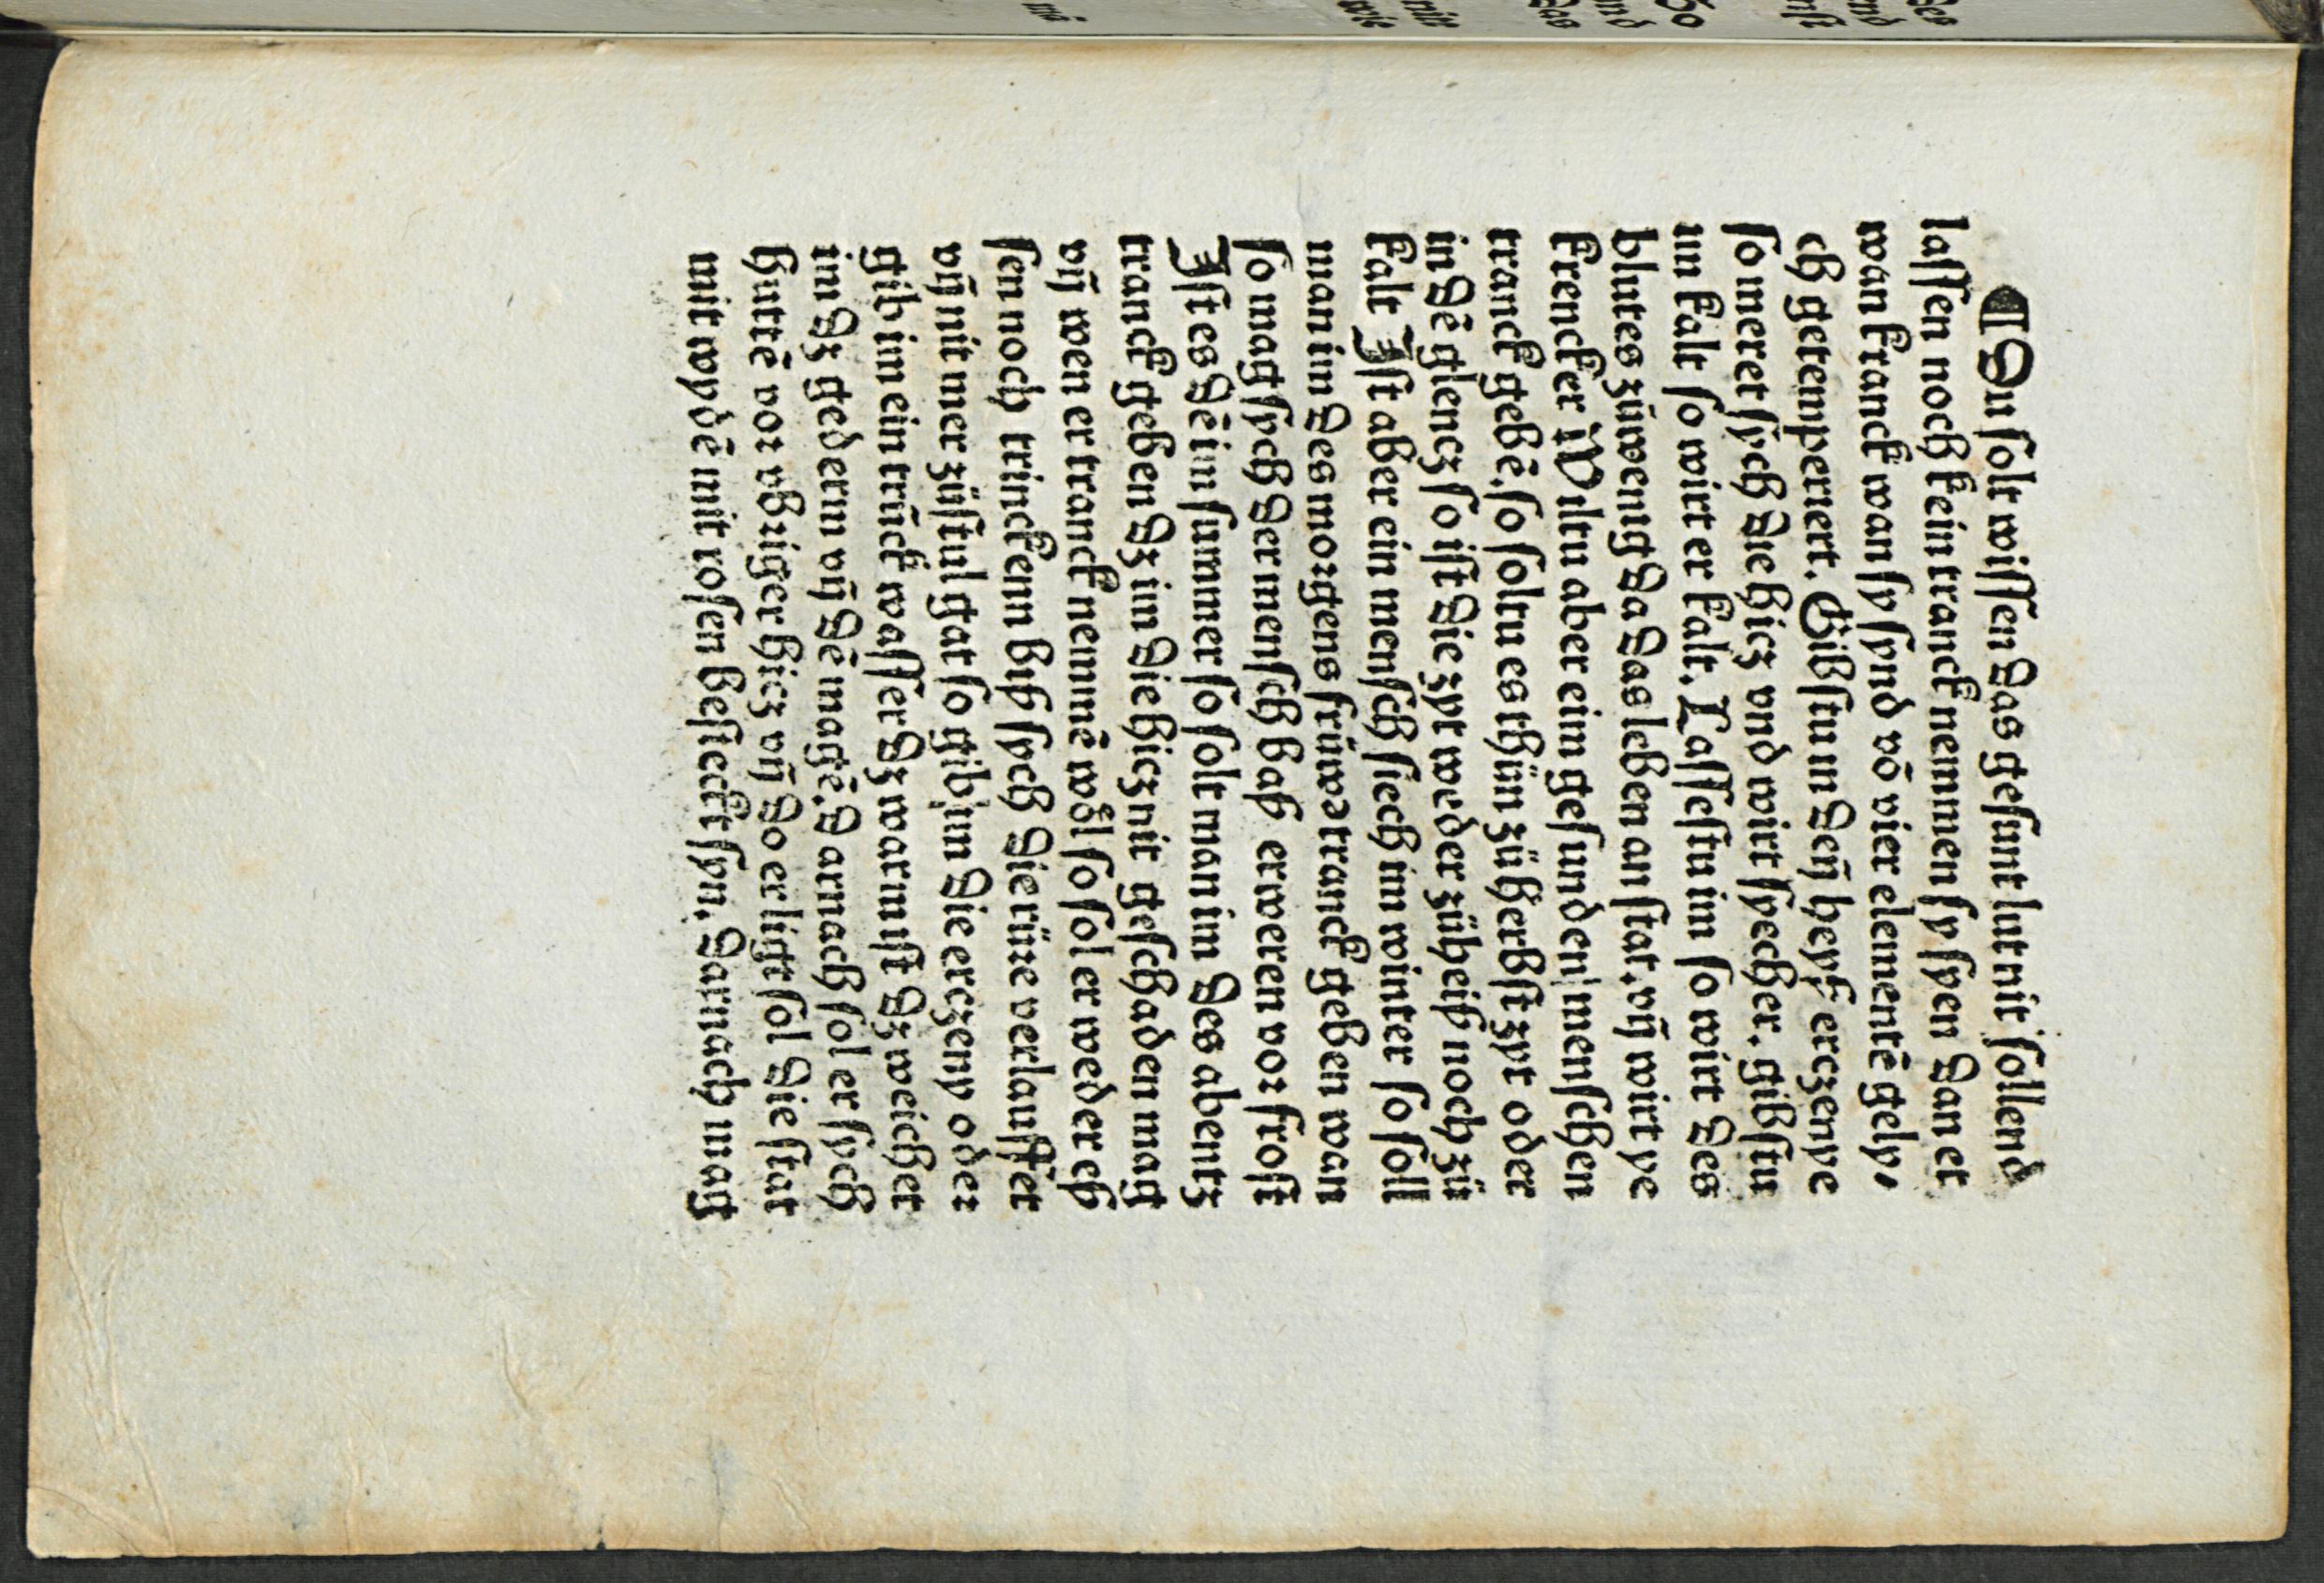 ¶ Du ſolt wiſſen das geſunt lut nit ſollend
laſſen noch kein tranck nemmen ſy ſyen dan et
wan kranck wan ſy ſynd vō vier elemētē gely⸗
ch getemperiert. Gibſtu im deñ heyſz erczenye
ſo meret ſych die hicz vnd wirt ſyecher. gibſtu
im kalt ſo wirt er kalt. Laſſeſtu im ſo wirt des
blutes zůwenig da das leben an ſtat. vñ wirt ye
krencker Wiltu aber eim geſunden menſchen
tranck gebē, ſo ſoltu es thůn zů herbſt zyt oder
in dē glencz ſo iſt die zyt weder zůheiß noch zů
kalt Iſt aber ein menſch ſiech im winter ſo ſoll
man im des morgens früw tranck geben wan
ſo mag ſych der menſch baß erweren vor froſt
Iſt es dē im ſummer ſo ſolt man im des abentz
tranck geben dz im die hicz nit geſchaden mag
vñ wen er tranck nemmē wöl ſo ſol er weder eß
ſen noch trincken biß ſych die rüne verlauffet
vñ nit mer zůſtul gat ſo gib im die erczeny oder
gib im ein trück waſſer dz warm iſt dz weichet
im dz gederm vñ dē magē. darnach ſol er ſych
huttē vor vbriger hicz vñ do er ligt ſol die ſtat
mit wydē mit roſen beſteckt ſyn. Darnach mag